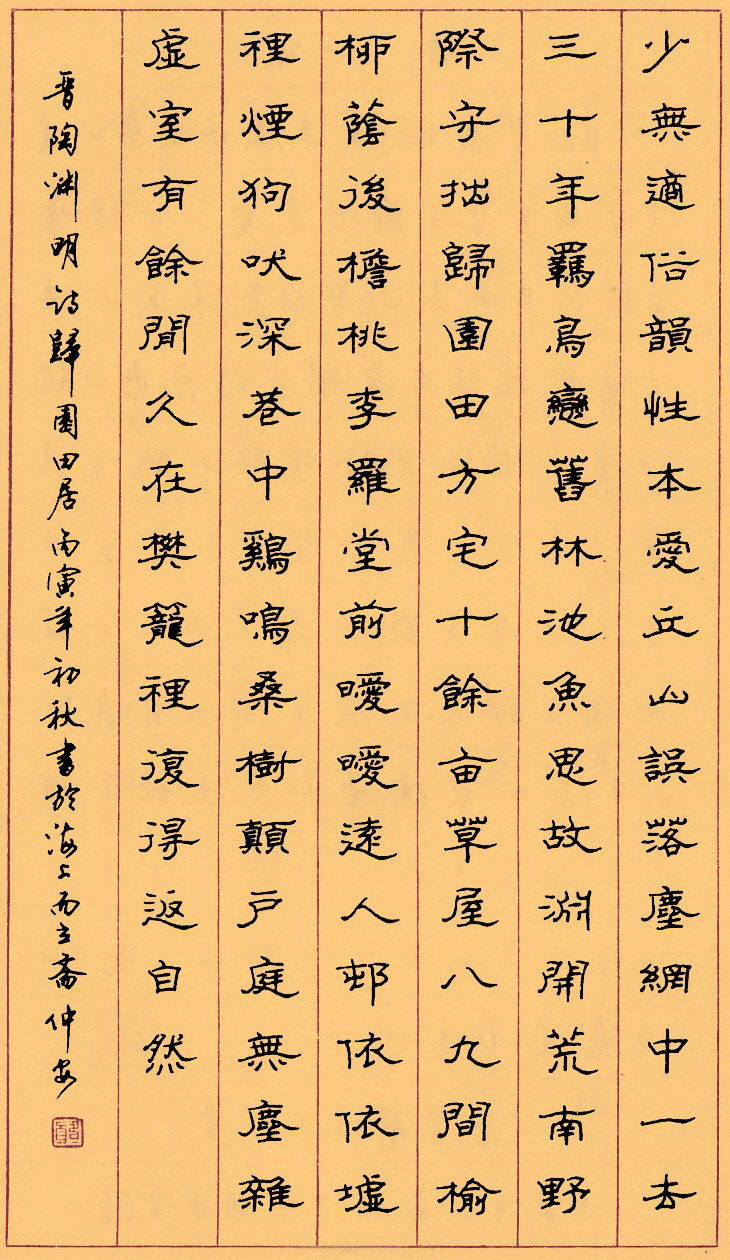 少無適俗韻性本愛丘山誤落塵網中一去
三十年羈鳥戀舊林池魚思故淵開荒南野
際守拙歸園田方宅十餘亩草屋八九間榆
柳蔭後檐桃李羅堂前曖曖遠人邨依依墟
裡煙狗吠深巷中鷄鳴桑樹顛戶庭無塵雜
虛室有餘閒久在樊籠裡復得返自然
晉陶淵明詩歸園田居丙寅年初秋書於海上而立齋仲安